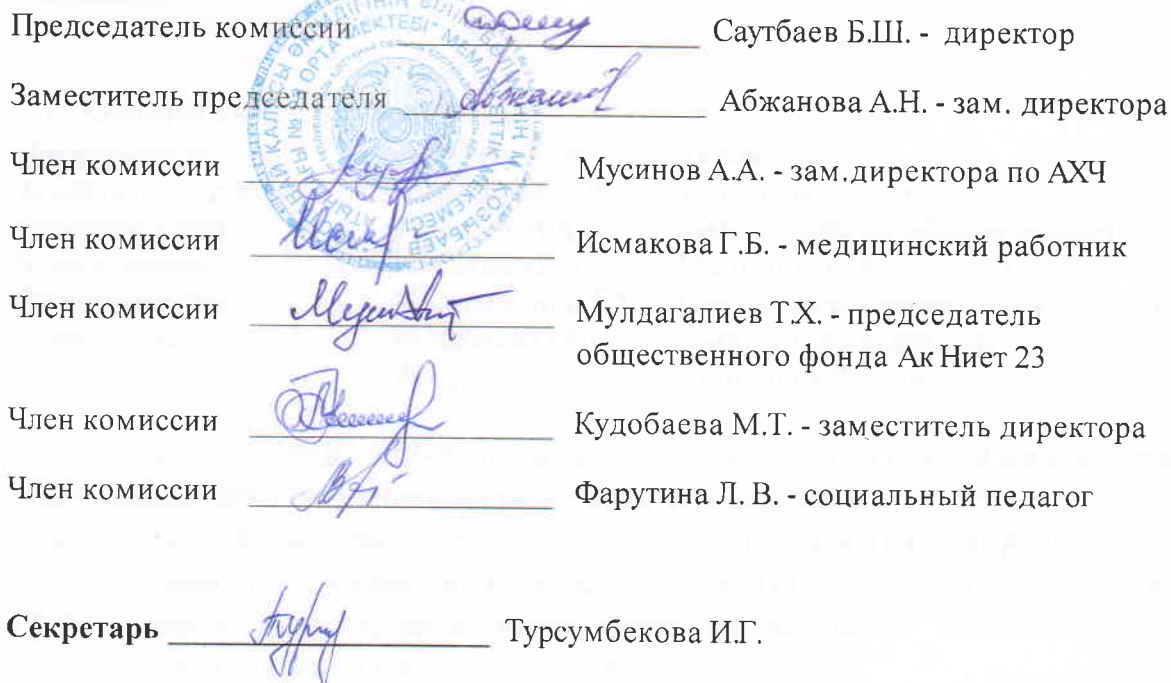 Председатель комиссии Саутбаев Б.Ш. - директор
Заместитель председателя Абжанова А.Н. - зам. директора
Член комиссии Мусинов А.А. - зам.директора по АХЧ
Член комиссии Исмакова Г.Б. - медицинский работник
Член комиссии Мулдагалиев Т.Х. - председатель
общественного фонда Ак Ниет 23
Член комиссии Кудобаева М.Т. - заместитель директора
Член комиссии Фарутина Л. В. - социальный педагог
Секретарь Турсумбекова И.Г.